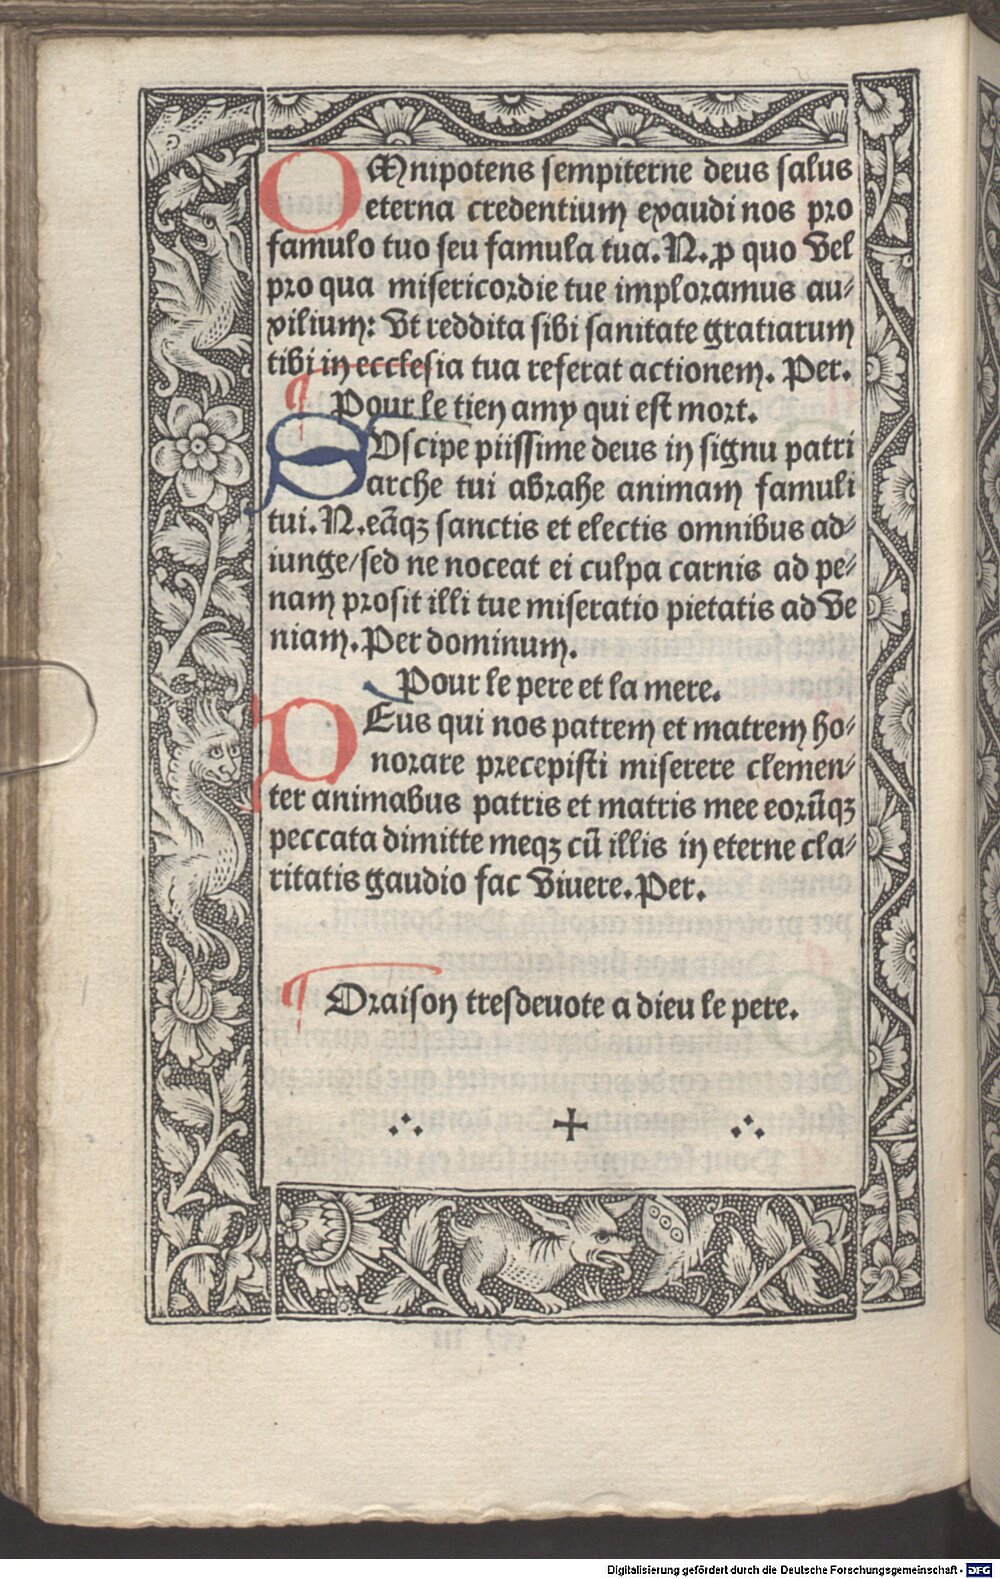 OMnipotens sempiterne deus salus
eterna credentium exaudi nos pro
famulo tuo seu famula tua. N. ꝓ quo vel
pro qua misericordie tue imploramus au-
xilium: vt reddita sibi sanitate gratiarum
tibi in ecclesia tua referat actionem. Per.
¶ Pour le tien amy qui est mort.
SVscipe piissime deus in signu patri
arche tui abrahe animam famuli
tui. N. eãqꝫ sanctis et electis omnibus ad-
iunge/sed ne noceat ei culpa carnis ad pe-
nam prosit illi tue miseratio pietatis ad ve
niam. Per dominum.
Pour le pere et la mere.
DEus qui nos patrem et matrem ho-
norare precepisti miserere clemen-
ter animabus patris et matris mee eorũqꝫ
peccata dimitte meqꝫ cũ illis in eterne cla-
ritatis gaudio fac viuere. Per.
¶ Oraison tresdeuote a dieu le pere.
Digitalisierung gefördert durch die Deutsche Forschungsgemeinschaft - DFG